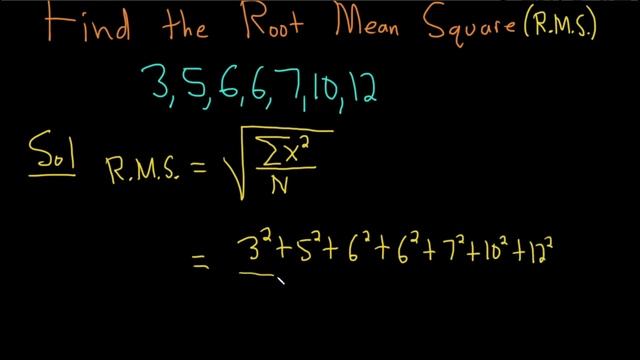 Find the Root Mean Square (R.M.S.)
3, 5, 6, 6, 7, 10, 12
Sol R.M.S. = √(Σx²/N)
= 3² + 5² + 6² + 6² + 7² + 10² + 12²